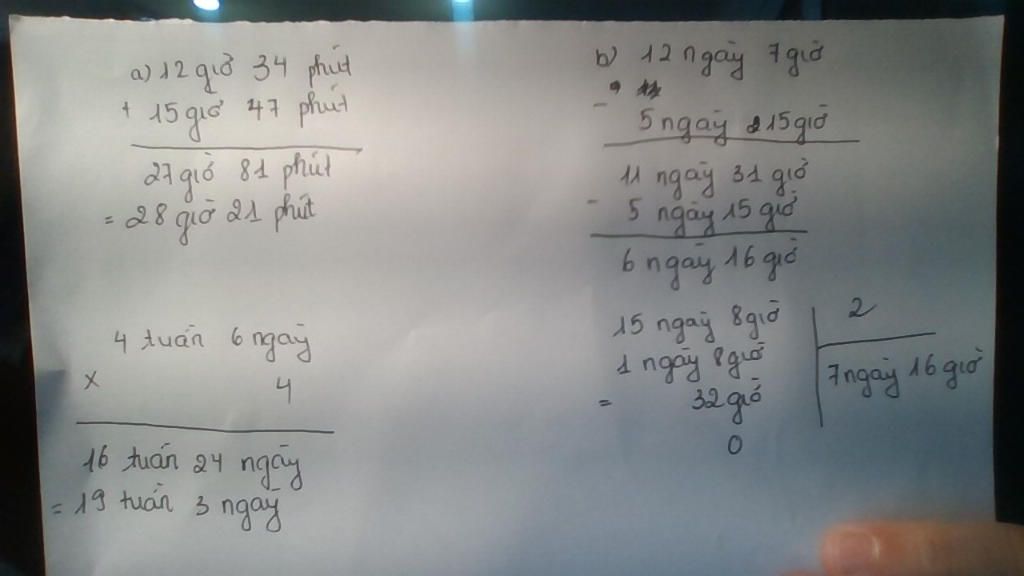 a) 12 giờ 34 phút
+ 15 giờ 47 phút
27 giờ 81 phút
= 28 giờ 21 phút
b) 12 ngày 7 giờ
-
5 ngày 15 giờ
11 ngày 31 giờ
- 5 ngày 15 giờ
6 ngày 16 giờ
4 tuần 6 ngày
x 4
16 tuần 24 ngày
= 19 tuần 3 ngày
15 ngày 8 giờ 2
1 ngày 8 giờ 7 ngày 16 giờ
= 32 giờ
0